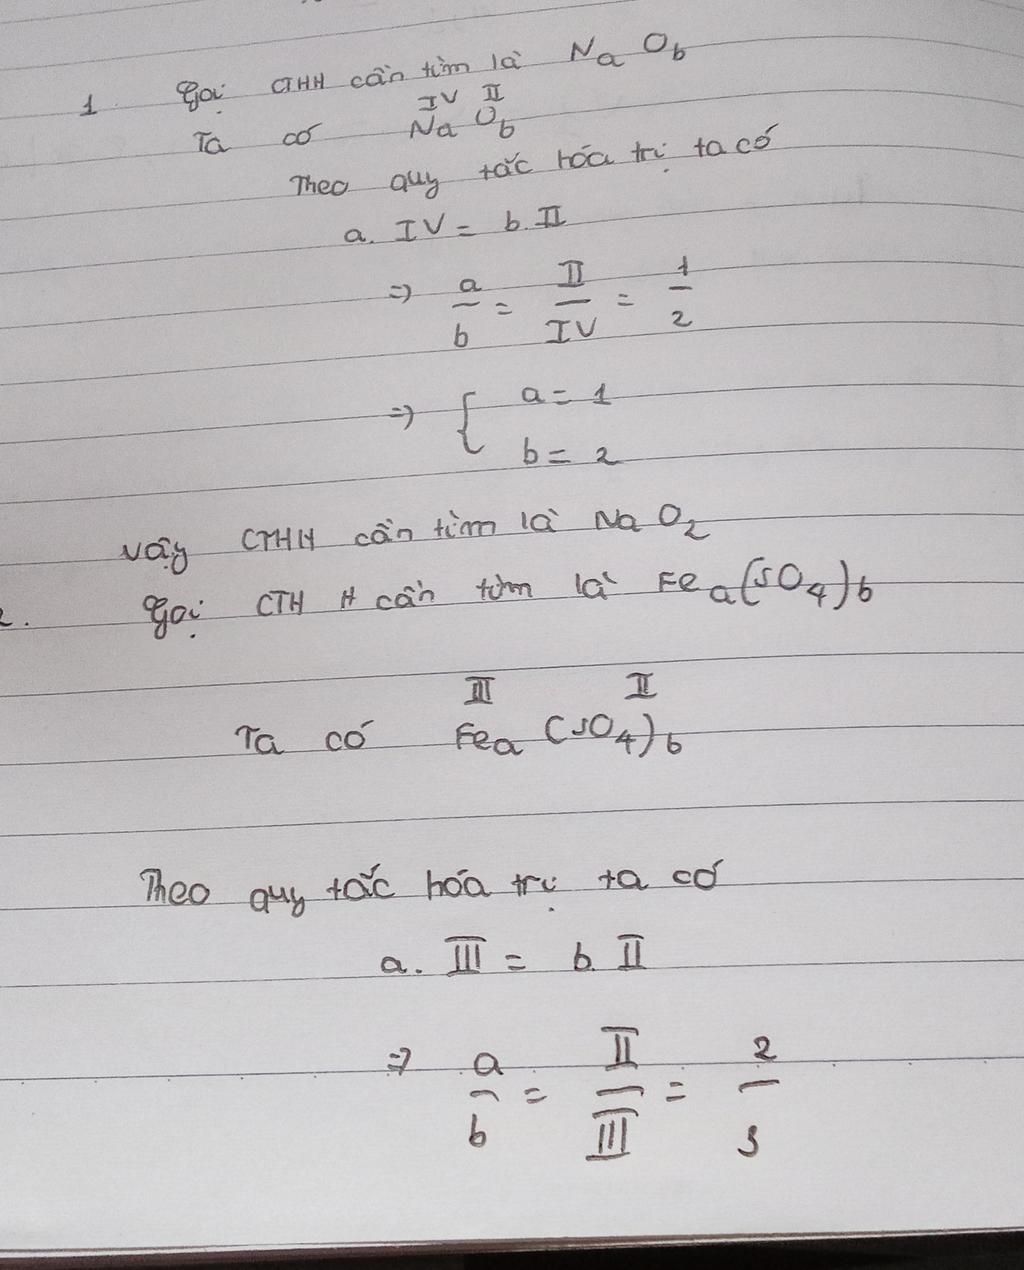 1. Gọi CTHH cần tìm là Na Ob
IV II
Ta có Na Ob
Theo quy tắc hóa trị ta có
a. IV = b. II
=> a/b = II/IV = 1/2
=> { a = 1
b = 2
Vậy CTHH cần tìm là Na O2
2. Gọi CTHH cần tìm là Fea(SO4)b
III II
Ta có Fea (SO4)b
Theo quy tắc hóa trị ta có
a. III = b. II
=> a/b = II/III = 2/3